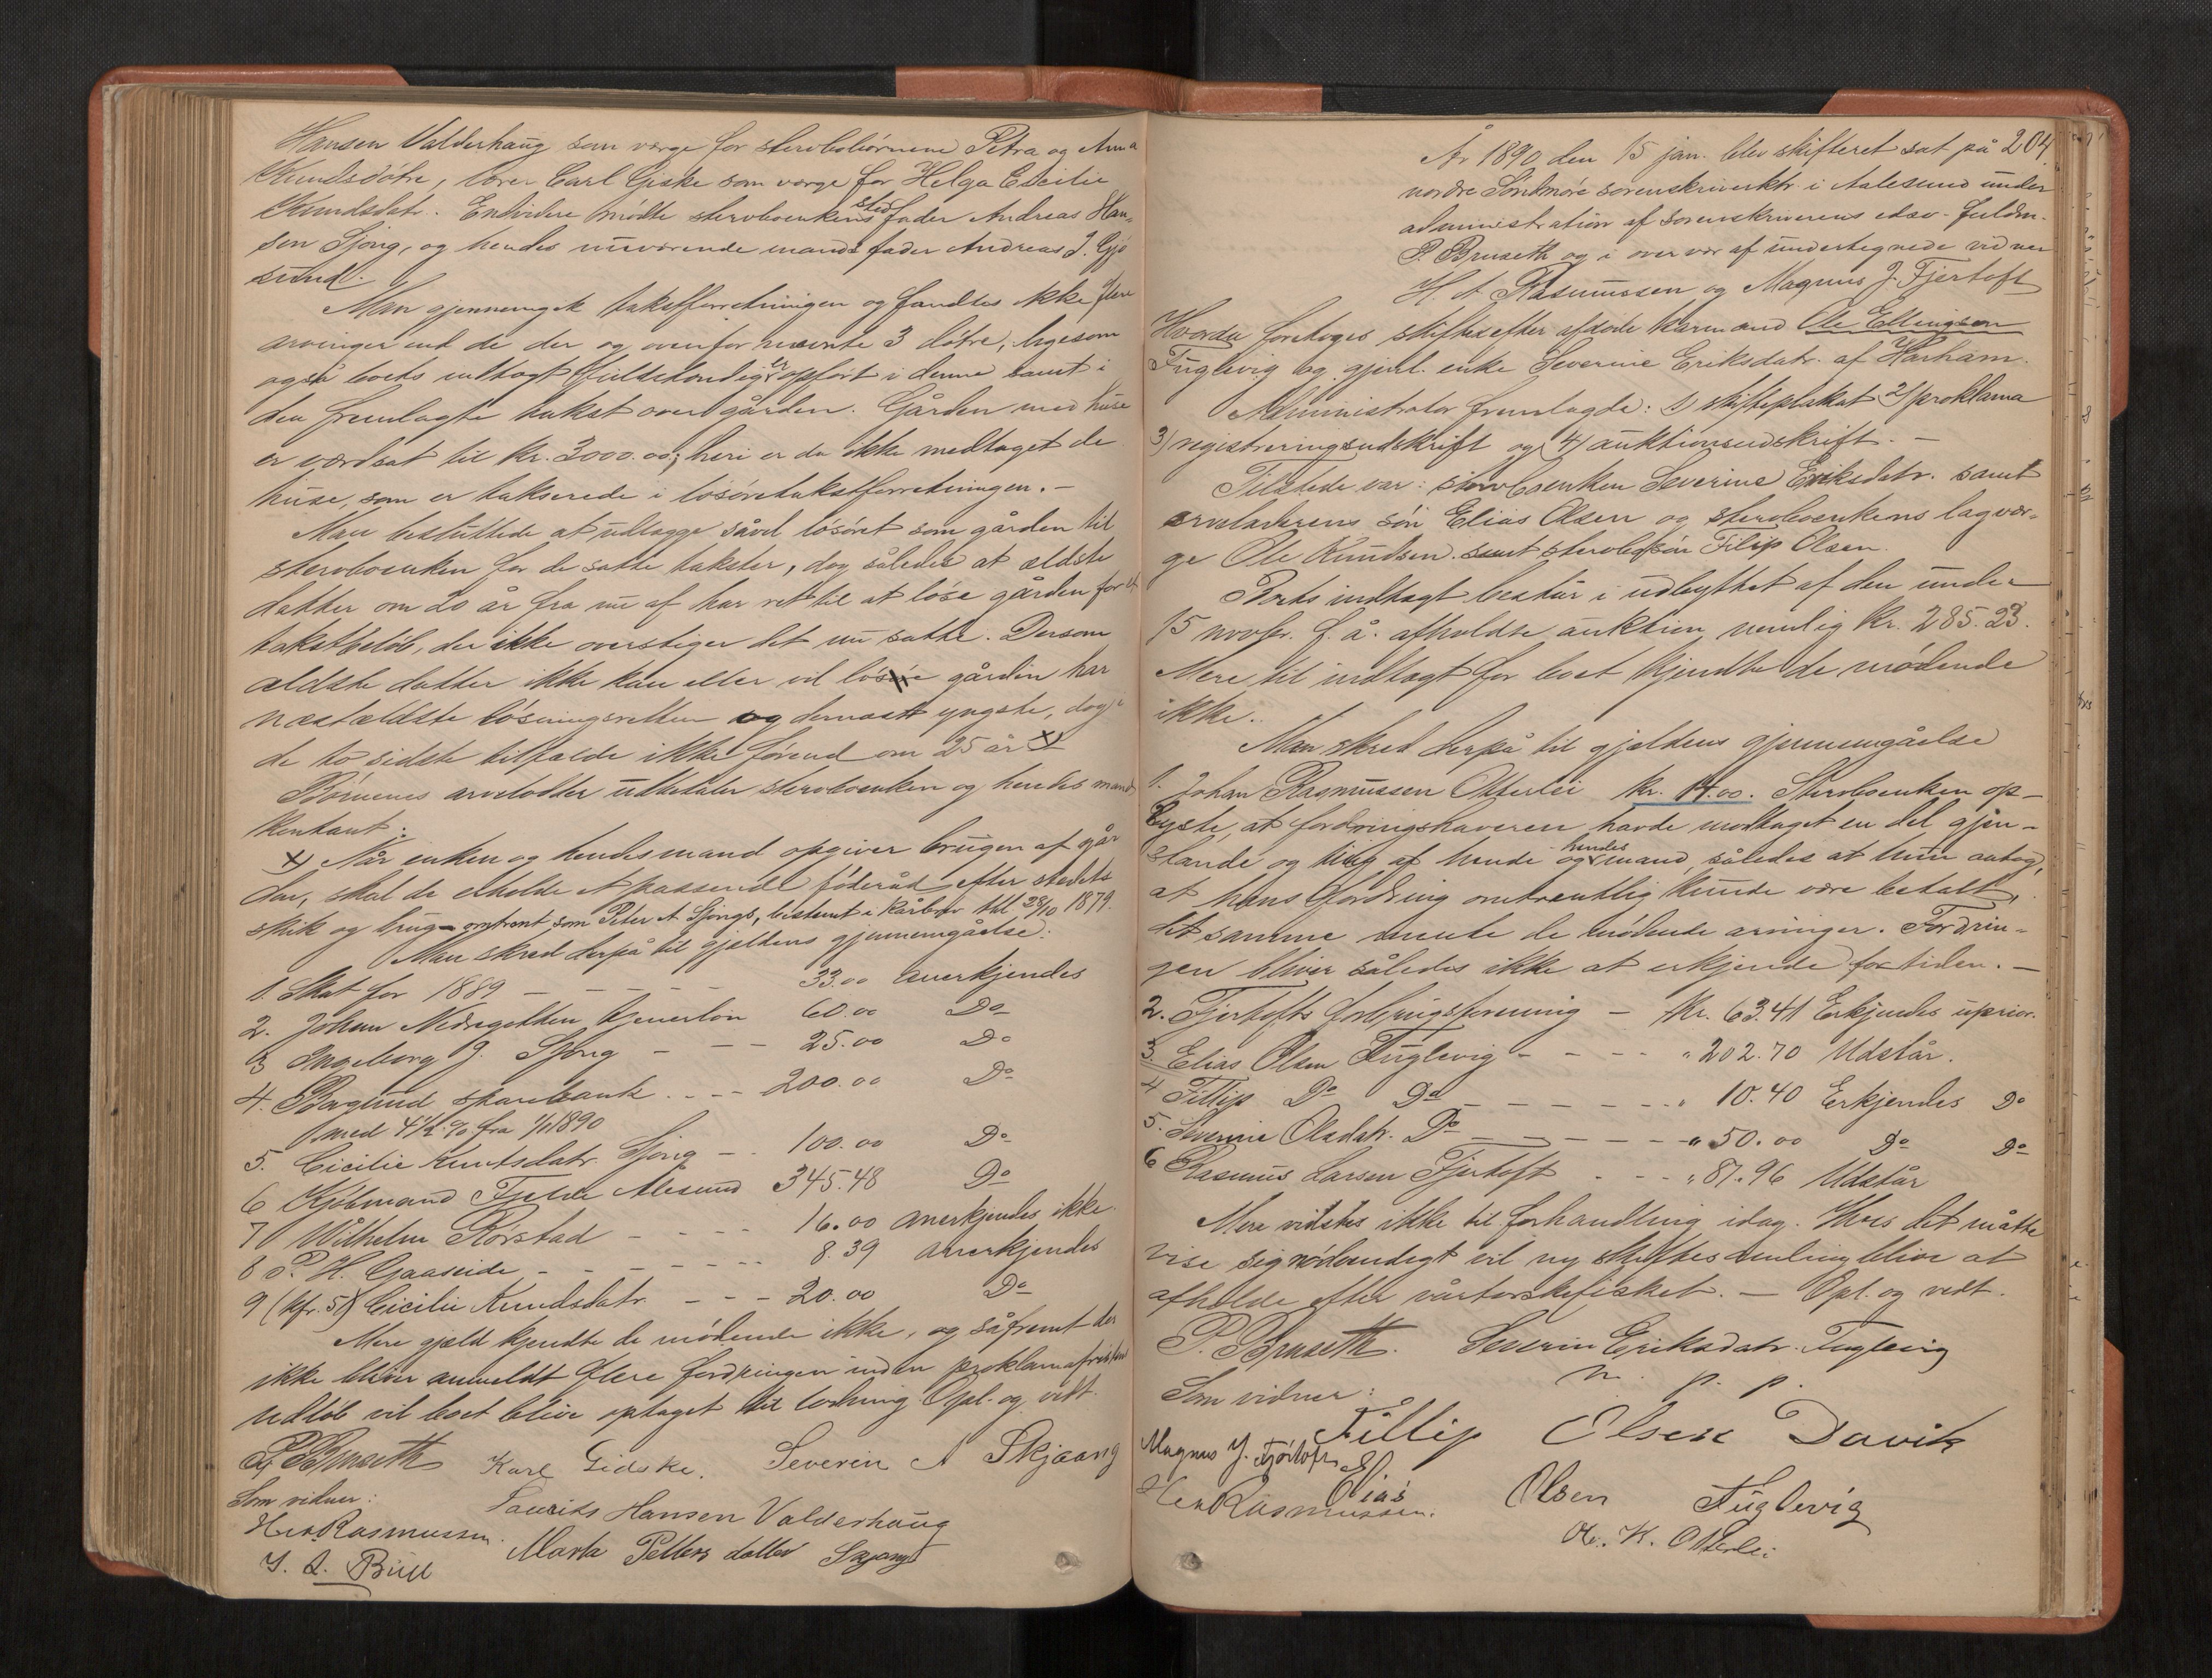 Hansen Valderhaug som værge for stervbobørnene Petra og Anna
Knudsdøtre, lærer Carl Giske som værge for Helga Cecilie
Knudsdatr. Endvidere mødte stervboenkens stedfader Andreas Han-
sen Sjong, og hendes nuværende mands fader Andreas J. Gjø
sund.
Man gjennemgik takstforretningen og fandtes ikke flere
arvinger end de der og ovenfor nævnte 3 døtre, ligesom
også boets indtægt fuldstændig er opført i denne samt i
den fremlagte takst over gården. Gården med huse
er værdsat til kr. 3000.00; heri er da ikke medtaget de
huse, som er takserede i løsøretakstforretningen. –
Man besluttede at udlægge såvel løsøret som gården til
stervboenken for de satte takster, dog således at ældste
datter om 20 år fra nu af har ret til at løse gården for et
takstbeløb, der ikke overstiger det nu satte. Dersom
ældste datter ikke kan eller vil løse gården har
næstældste løsningsretten og dernæst yngste, dog i
de to sidste tilfælde ikke førend om 25 år x)
Børnenes arvelodder udbetaler stervboenken og hendes mand
kontant.
x) Når enken og hendes mand opgiver brugen af går
den, skal de erholde et passende føderåd efter stedets
skik og brug – omtrent som Peter A Sjongs, bestemt i kårbrev thl 28/10 1879.
Man skred derpå til gjældens gjennemgåelse:
1. Skat for 1889 – – – – 33.00 anerkjendes
2. Johan Nedregotten Gjenerløn 60.00 Do
3 Ingeborg J. Sjong – – – 25.00 Do
4. Borgund sparebank – – – 200.00 Do
med 4½ % fra 1/1 1890
5. Cicilie Knutsdatr. Sjong – – 100.00 Do
6 Kjøbmand Fjelde Alesund 345.48 Do
7 Wilhelm Rørstad – – – 16.00 anerkjendes ikke.
8 P. H. Gaaseide – – – – – 8.39 anerkjendes
9 (kfr. 5) Cicilie Knudsdatr. – – – 20.00 Do
Mere gjæld kjendte de mødende ikke, og såfremt der
ikke bliver anmeldt flere fordringer inden proklamafristens
udløb vil boet blive optaget til lodning. Opl. og vedt.
P. Bruseth Karl Gidske. Severin A Skjaang
Som vidner: Laurits Hansen Valderhaug
Her Rasmussen. Marta Petters datter Skjong
J. A. Bull
204
År 1890 den 15 jan. blev skifteret sat på
nordre Söndmöre sorenskriverktr. i Aalesund under
administration af sorenskriverens edsv. fuldm.
P. Bruseth og i overvær af undertegnede vidner
H. A Rasmussen og Magnus J. Fjertoft
Hvorda foretoges skifte efter afdøde kårmand Ole Ellingsen
Fuglevig og gjenl. enke Severine Eriksdatr. af Harham.
Administrator fremlagde: 1) skifteplakat 2) proklama
3) registreringsudskrift og 4) auktionsudskrift. –
Tilstede var: stervboenken Severine Eriksdatr. samt
arveladerens søn Elias Olsen og stervboenkens lagvær-
ge Ole Knudsen samt stervbosøn Filip Olsen.
Boets indtægt består i udbyttet af den under
15 novbr. f. å. afholdte auktion, nemlig kr. 285.23.
Mere til indtægt for boet kjendte de mødende
ikke.
Man skred derpå til gjældens gjennemgåelse
1. Johan Rasmussen Otterlei kr. 14.00. Stervboenken op-
lyste, at fordringshaveren havde modtaget en del gjen-
stande og ting af hende og hendes mand, således at hun antog,
at hans fordring omtrentlig kunde være betalt,
det samme mente de mødende arvinger. Fordrin-
gen bliver således ikke at erkjende for tiden. –
2. Fjertofts forbrugsforening – kr. 63.41 Erkjendes uprior.
3. Elias Olsen Fuglevig – – – – „ 202.70 Udstår.
4 Fillip Do Do – – – – – „ 10.40 Erkjendes Do
5. Severine Olsdatr. Do – – – – „ 50.00 Do Do
6 Rasmus Larsen Fjertoft – – – „ 87.96 Udstår
Mere vidstes ikke til forhandling idag. Hvis det måtte
vise sig nødvendigt vil ny skiftesamling blive at
afholde efter vårtorskefisket. – Opl. og vedt.
P. Bruseth. Severin Eriksdatr. Fuglevig
m. p. p.
Som vidner:
Fillip Olsen Davik
Magnus J. Fjørtoft
Elias Olsen Fuglevig
Her Rasmussen.
Ole. K. Otterlei